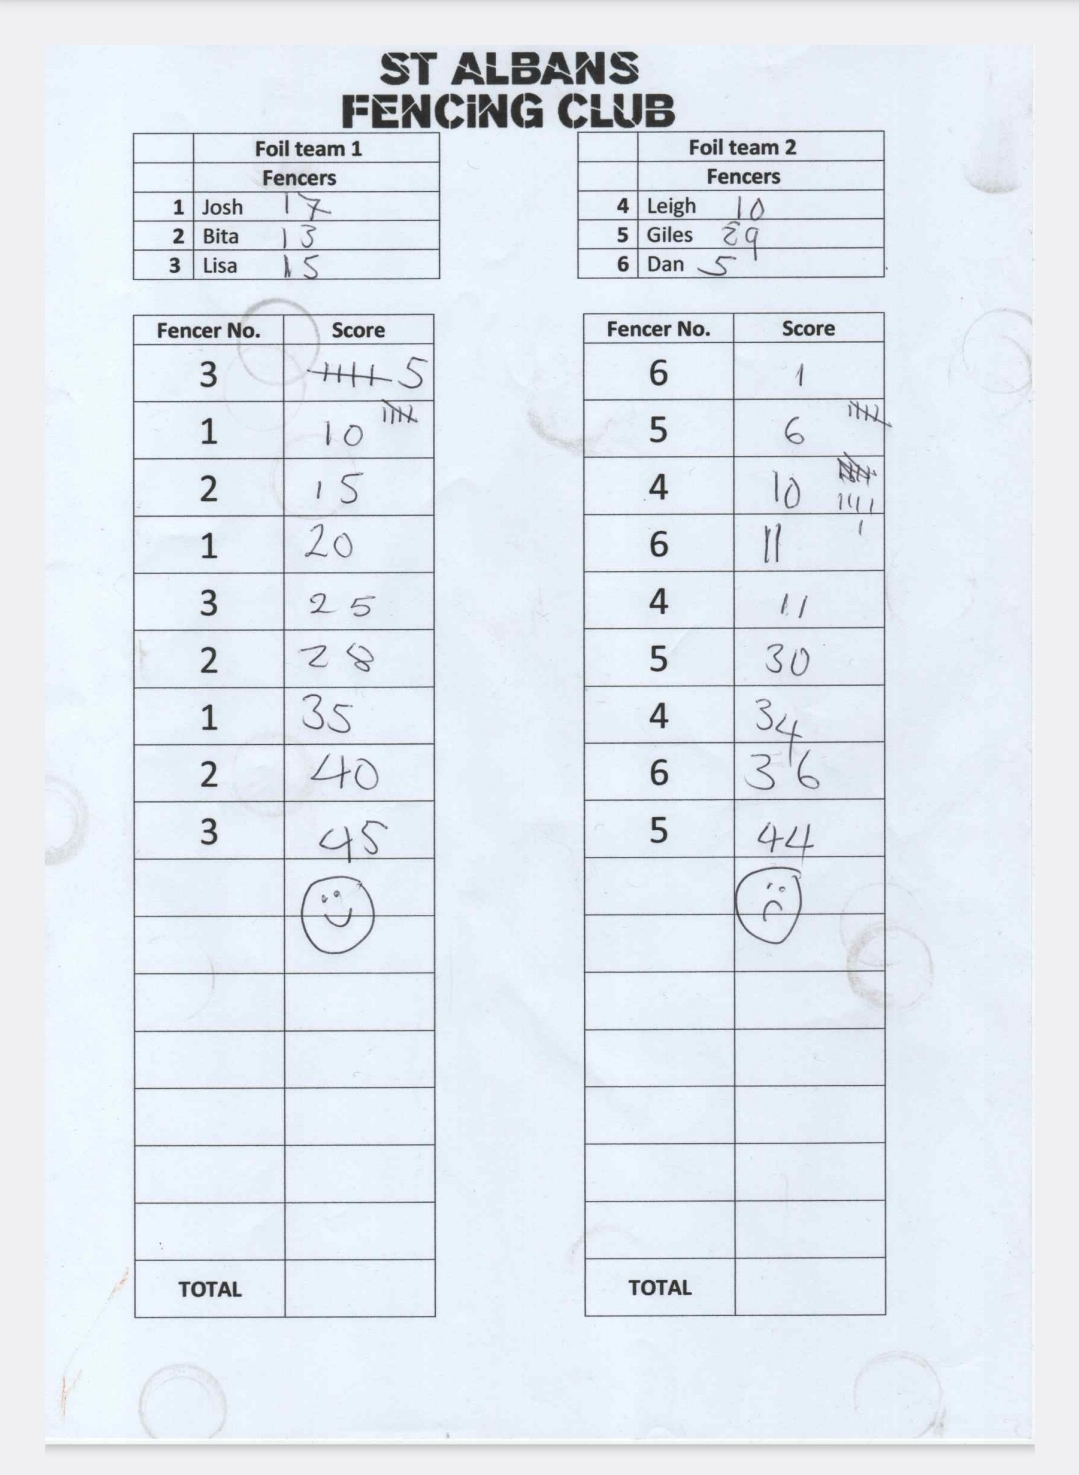 ST ALBANS
FENCING CLUB
Foil team 1
Fencers
1 Josh 17
2 Bita 13
3 Lisa 15
Foil team 2
Fencers
4 Leigh 10
5 Giles 29
6 Dan 5
Fencer No. Score
3 5
1 10
2 15
1 20
3 25
2 28
1 35
2 40
3 45
TOTAL
Fencer No. Score
6 1
5 6
4 10
6 11
4 11
5 30
4 34
6 36
5 44
TOTAL